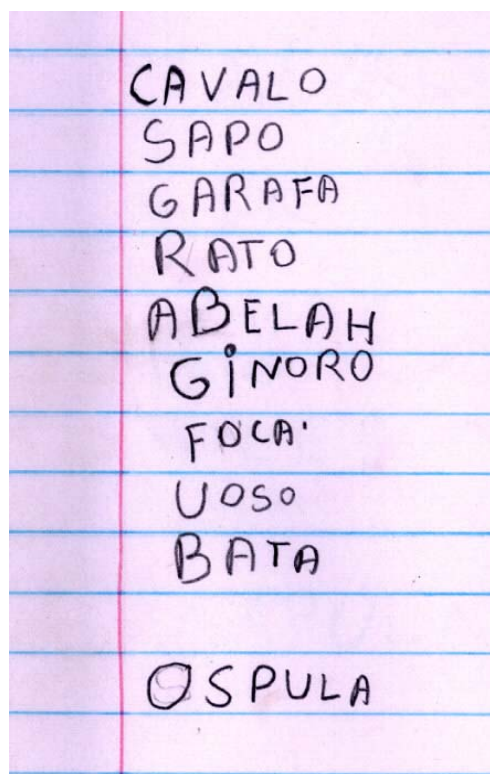 CAVALO
SAPO
GARAFA
RATO
ABELAH
GiNORO
FOCA
UOSO
BATA
OSPULA